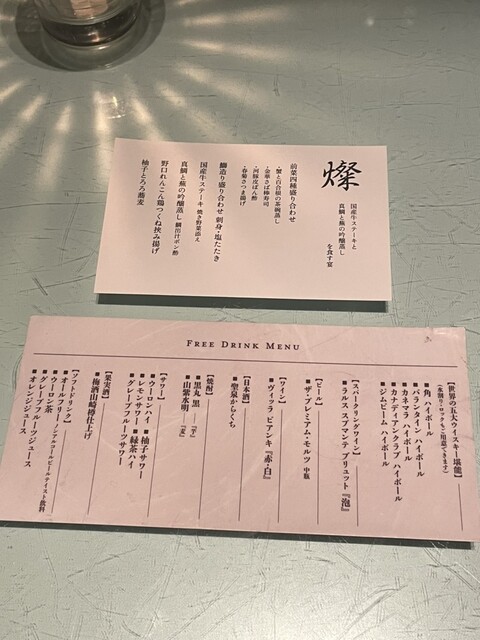 燦
国産牛ステーキと
真鯛と蕪の吟醸蒸し
を食す宴
前菜四種盛り合わせ
・蟹と百合根の茶碗蒸し
・金華さば棒寿司
・河豚皮ぽん酢
・春菊さつま揚げ
鰤造り盛り合わせ 刺身・塩たたき
国産牛ステーキ 焼き野菜添え
真鯛と蕪の吟醸蒸し 鯛出汁ポン酢
野口れんこん鶏つくね挟み揚げ
柚子とろろ蕎麦
FREE DRINK MENU
【世界の五大ウイスキー堪能】
(水割り・ロックもご用意できます)
■角 ハイボール
■バランタイン ハイボール
■カネマラ ハイボール
■カナディアンクラブ ハイボール
■ジムビーム ハイボール
【スパークリングワイン】
■ラルス スプマンテ ブリュット『泡』
【ビール】
■ザ・プレミアム・モルツ 中瓶
【ワイン】
■ヴィッラ ビアンキ『赤・白』
【日本酒】
■聖泉からくち
【焼酎】
■黒丸 黒 ―『芋』
■山紫水明 ―『麦』
【サワー】
■ウーロンハイ ■柚子サワー
■レモンサワー ■緑茶ハイ
■グレープフルーツサワー
【果実酒】
■梅酒山崎樽仕上げ
【ソフトドリンク】
■オールフリー ノンアルコールビールテイスト飲料
■ウーロン茶
■グレープフルーツジュース
■オレンジジュース